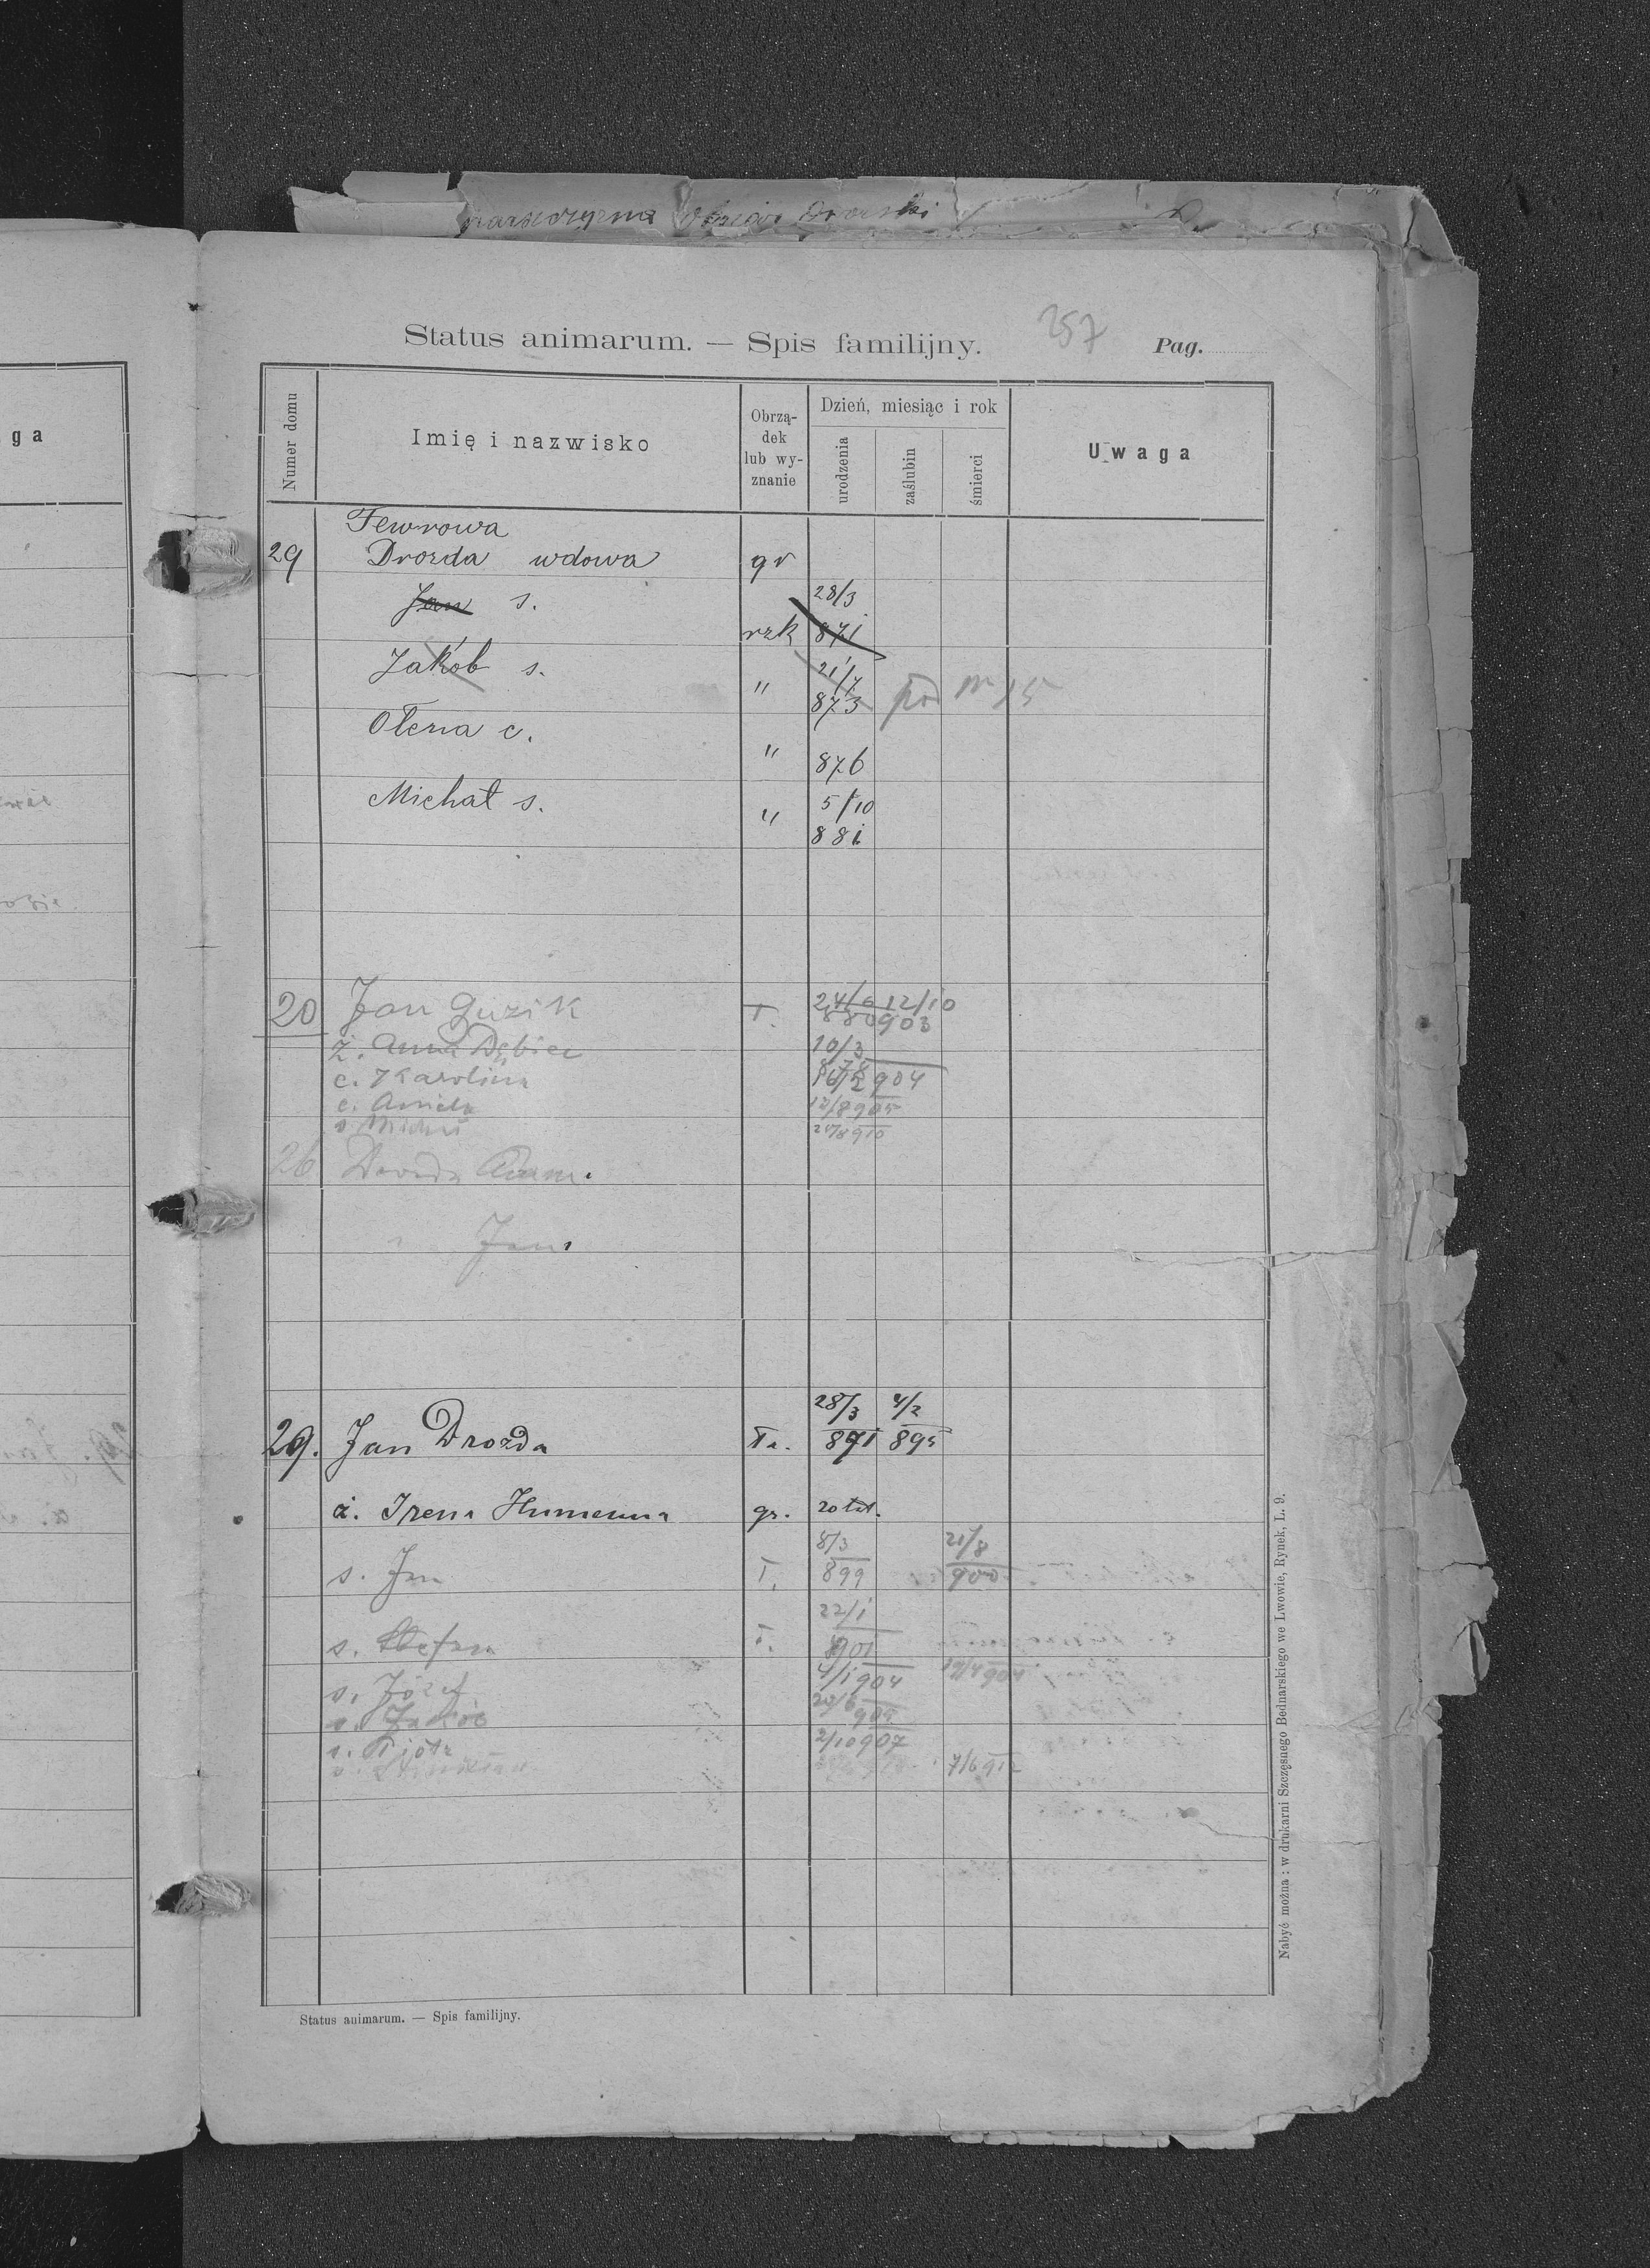 Status animarum. — Spis familijny.
257
Pag.
ga
Numer domu
Imię i nazwisko
Obrzą-
dek
lub wy-
znanie
Dzień, miesiąc i rok
urodzenia
zaślubin
śmierci
Uwaga
Fewrowa
29 Drozda wdowa gr
Jan s. rzk 28/3 871
Jakób s. " 21/7 873 pod Nr 15
Olena c. " 876
Michał s. " 5/10 881
20 Jan Guzik r. 24/6 880 12/10 903
ż. Anna Dębiec 10/3 878
c. Karolina 16/2 904
c. Aniela 12/8 905
s. Michał 24/8 910
26 Drozda
" Jan
29. Jan Drozda ła. 28/3 871 4/2 895
ż. Irena Humenna gr. 20 lat.
s. Jan ł. 8/3 899 21/8 900
s. Stefan ł. 22/1 901
s. Józef 4/1 904 12/4 904
s. Jakób 20/6 905
s. Piotr 2/10 907
7/6 912
Nabyć można: w drukarni Szczęsnego Bednarskiego we Lwowie, Rynek, L. 9.
Status animarum. — Spis familijny.